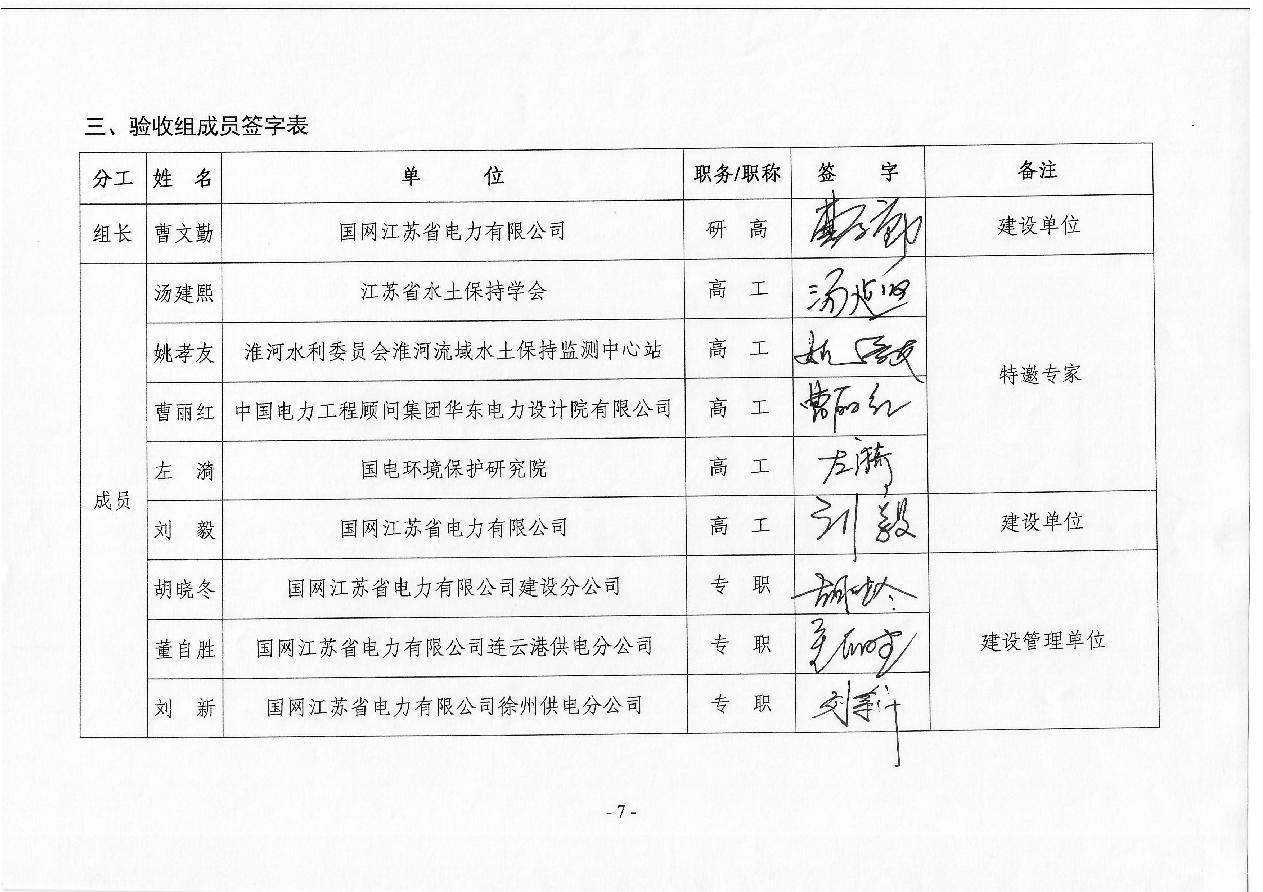 三、验收组成员签字表
分工 姓 名 单 位 职务/职称 签 字 备注
组长 曹文勤 国网江苏省电力有限公司 研 高 曹文勤 建设单位
成员
汤建熙 江苏省水土保持学会 高 工 汤建熙
姚孝友 淮河水利委员会淮河流域水土保持监测中心站 高 工 姚孝友
特邀专家
曹丽红 中国电力工程顾问集团华东电力设计院有限公司 高 工 曹丽红
左 漪 国电环境保护研究院 高 工 左漪
刘 毅 国网江苏省电力有限公司 高 工 刘毅 建设单位
胡晓冬 国网江苏省电力有限公司建设分公司 专 职 胡晓冬
董自胜 国网江苏省电力有限公司连云港供电分公司 专 职 建设管理单位
刘 新 国网江苏省电力有限公司徐州供电分公司 专 职 刘新
- 7 -